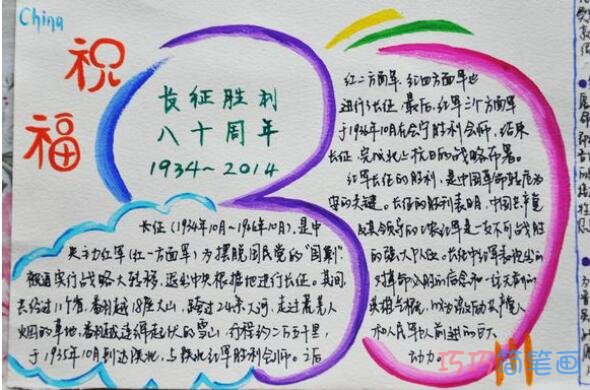 China
祝
福
长征胜利
八十周年
1934~2014
长征（1934年10月~1936年10月），是中
央主力红军（红一方面军）为摆脱国民党的“围剿”，
被迫实行战略大转移，退出中央根据地进行长征。其间
共经过11个省，翻越18座大山，跨过24条大河，走过荒无人
烟的草地，翻越连绵起伏的雪山，行程约二万五千里，
于1935年10月到达陕北，与陕北红军胜利会师。之后
红二方面军，红四方面军也
进行了长征，最后，红军三个方面军
于1936年10月在会宁胜利会师，结束
长征，完成北上抗日的战略部署。
红军长征的胜利，是中国革命转危为
安的关键。长征的胜利表明，中国共产党
及其领导的红军是一支不可战胜
的强大队伍。长征中红军表现出的
对革命必胜的信念和一往无前的
英雄气概，成为激励共产党人
和人民军队人前进的巨大
动力。
巧巧简笔画